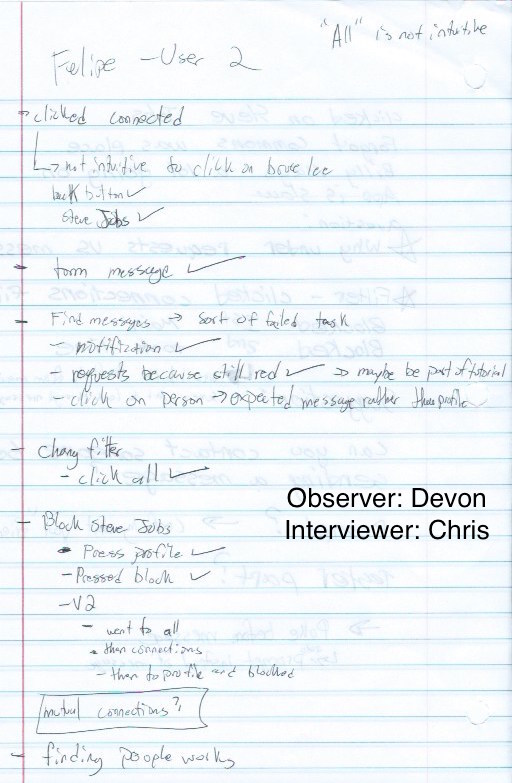 "All" is not intuitive
Felipe - User 2
→ clicked connected
↳ not intuitive to click on bruce lee
back button ✓
Steve Jobs ✓
- form message ✓
- Find messages → sort of failed task
- notification ✓
- requests because still red ✓ → maybe be part of tutorial
- click on person → expected message rather than profile
- Chang filter
- click all ✓
- Block Steve Jobs
- Press profile ✓
- Pressed block ✓
- V2
- went to all
- then connections
- then to profile and blocked
mutual connections?
- finding people works
Observer: Devon
Interviewer: Chris